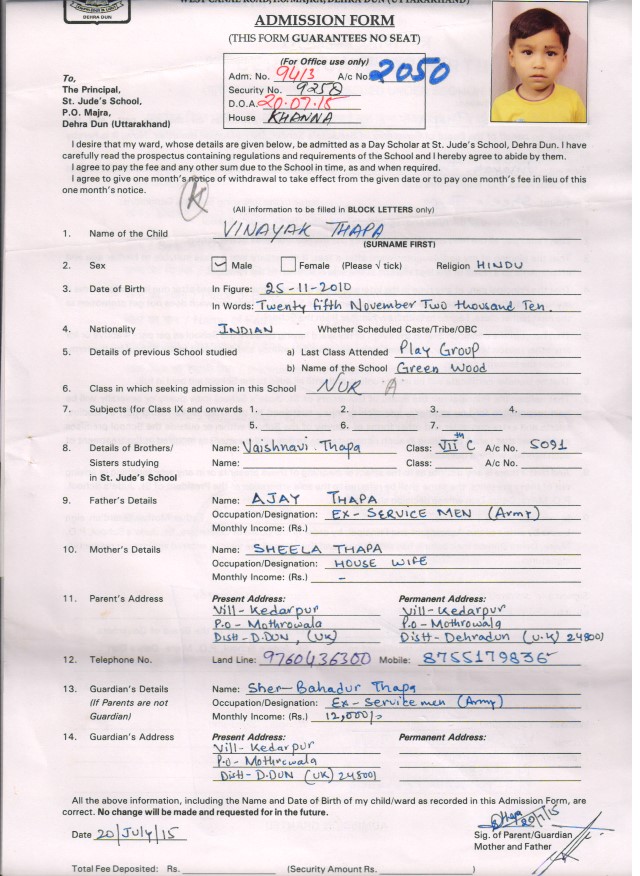 WEST CANAL ROAD, P.O. MAJRA, DEHRA DUN (UTTARAKHAND)
DEHRA DUN
ADMISSION FORM
(THIS FORM GUARANTEES NO SEAT)
(For Office use only)
Adm. No. 9413 A/c No. 2050
Security No. 9258
D.O.A. 20-07-15
House KHANNA
To,
The Principal,
St. Jude's School,
P.O. Majra,
Dehra Dun (Uttarakhand)
I desire that my ward, whose details are given below, be admitted as a Day Scholar at St. Jude's School, Dehra Dun. I have
carefully read the prospectus containing regulations and requirements of the School and I hereby agree to abide by them.
I agree to pay the fee and any other sum due to the School in time, as and when required.
I agree to give one month's notice of withdrawal to take effect from the given date or to pay one month's fee in lieu of this
one month's notice.
K
(All information to be filled in BLOCK LETTERS only)
1. Name of the Child VINAYAK THAPA
(SURNAME FIRST)
2. Sex Male Female (Please √ tick) Religion HINDU
3. Date of Birth In Figure: 25-11-2010
In Words: Twenty fifth November Two thousand Ten.
4. Nationality INDIAN Whether Scheduled Caste/Tribe/OBC
5. Details of previous School studied a) Last Class Attended Play Group
b) Name of the School Green Wood
6. Class in which seeking admission in this School NUR 'A'
7. Subjects (for Class IX and onwards 1. 2. 3. 4.
5. 6. 7.
8. Details of Brothers/ Name: Vaishnavi. Thapa Class: VIIth C A/c No. 5091
Sisters studying Name: Class: A/c No.
in St. Jude's School
9. Father's Details Name: AJAY THAPA
Occupation/Designation: EX-SERVICE MEN (Army)
Monthly Income: (Rs.)
10. Mother's Details Name: SHEELA THAPA
Occupation/Designation: HOUSE WIFE
Monthly Income: (Rs.) –
11. Parent's Address Present Address: Permanent Address:
Vill- Kedarpur Vill- Kedarpur
P.o - Mothrowala P.o- Mothrowala
Distt- D.DUN, (UK) Distt- Dehradun (U.K) 248001
12. Telephone No. Land Line: 9760436300 Mobile: 8755179836
13. Guardian's Details Name: Sher-Bahadur Thapa
(If Parents are not Occupation/Designation: Ex-Servicemen (Army)
Guardian) Monthly Income: (Rs.) 12,000/-
14. Guardian's Address Present Address: Permanent Address:
Vill- Kedarpur
P.o- Mothrowala
Distt- D.DUN (UK) 248001
All the above information, including the Name and Date of Birth of my child/ward as recorded in this Admission Form, are
correct. No change will be made and requested for in the future.
Date 20/July/15
Sig. of Parent/Guardian
Mother and Father
Total Fee Deposited: Rs. (Security Amount Rs. )